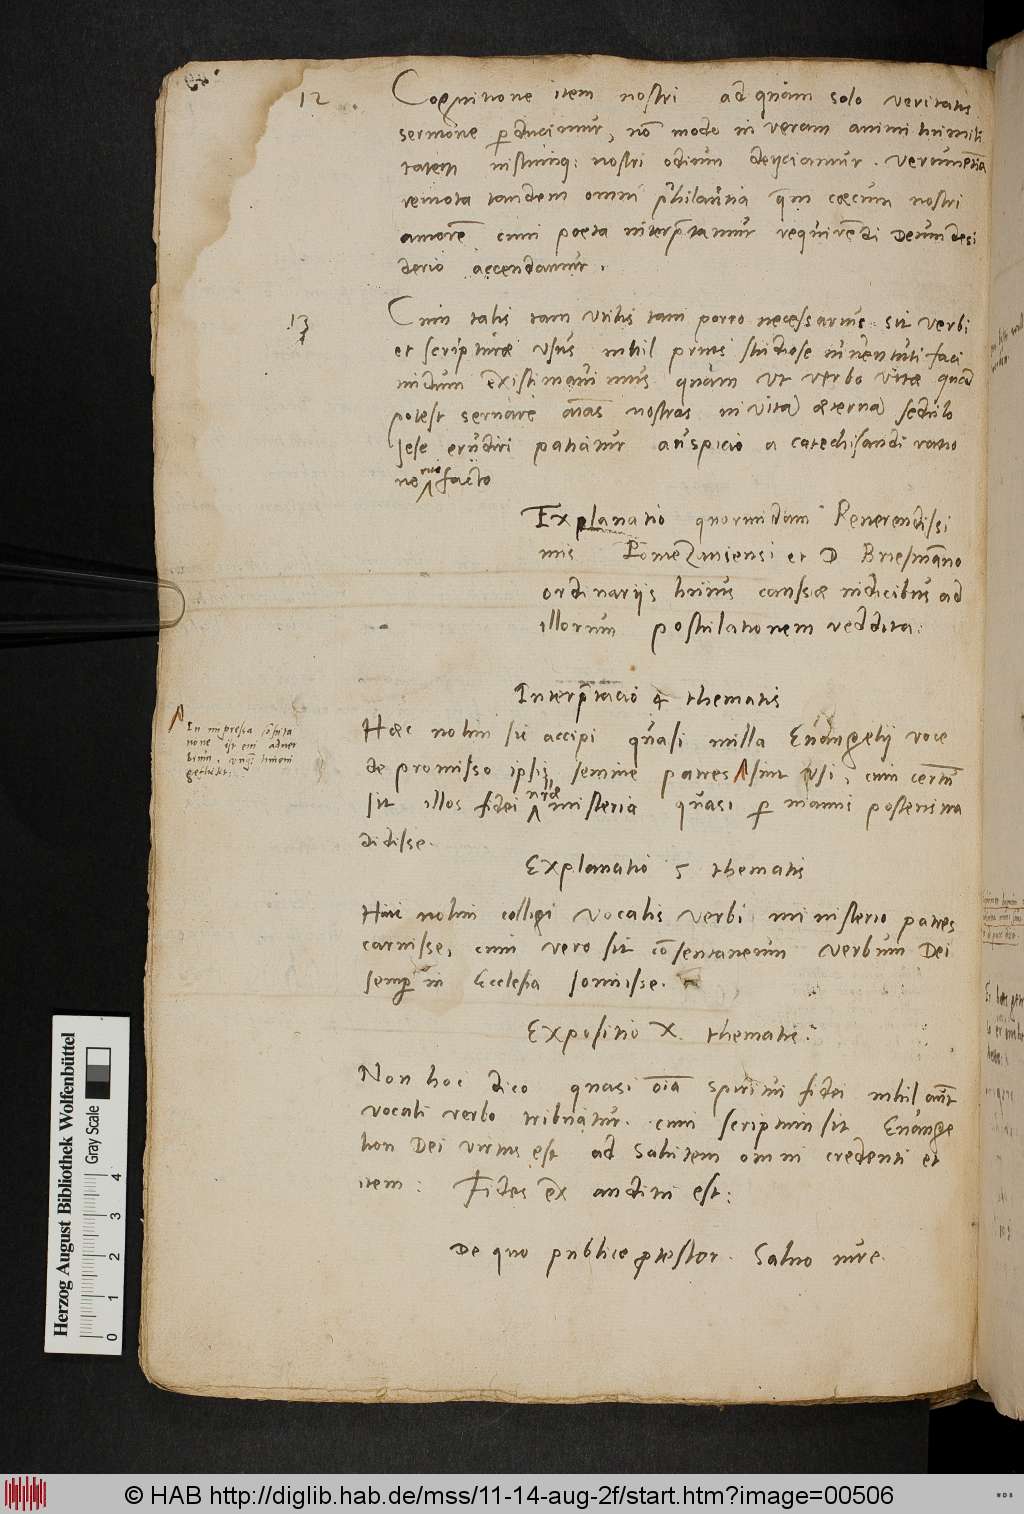 12. Cognitione item nostri ad quam solo veritatis
sermone perducimur, nō modo in veram animi humili
tatem nostri odium deijciamur. verumetiā
remota tandem omni philautia qm̄ cæcum nostri
amorē cum poeta interp̄tamur requirēdi Deum desi
derio accendamur.
13 Cum talis tam vtilis tam porro necessarius sit verbi
et scripturæ vsus nihil prius studiose iuuentuti faci
undum existimauimus quam vt verbo vitæ quod
potest seruare aīas nostras in vitā æternā sedulo
sese erudiri patiatur auspicio a catechisandi ratio
ne facto
Explanatio quorundam Reuerendissi
mis Pomezaniensi et D Briesmāno
ordinariis huius caussæ iudicibus ad
illorum postulationem reddita:
Interp̄tacio 4 thematis
Hæc nolim sic accipi quasi nulla Euangelij voce
de promisso ipsis semine patres sint vsi, cum certū
sit illos fidei nr̄æ misteria quasi per manus posteris tra
didisse.
Explanatio 5 thematis
Hinc nolim colligi vocalis verbi ministerio patres
caruisse, cum vero sit cōsentaneum verbum Dei
semper in Ecclesia sonuisse.
Expositio X thematis:
Non hoc dico quasi oīa spiritui fidei nihil aūt
vocali verbo tribuatur. cum scriptum sit Euange
lion Dei virtus est ad Salutem omni credenti et
item: Fides ex auditu est:
De quo publice protestor. Saluo iure.
Herzog August Bibliothek Wolfenbüttel
Gray Scale
0 1 2 3 4
© HAB http://diglib.hab.de/mss/11-14-aug-2f/start.htm?image=00506